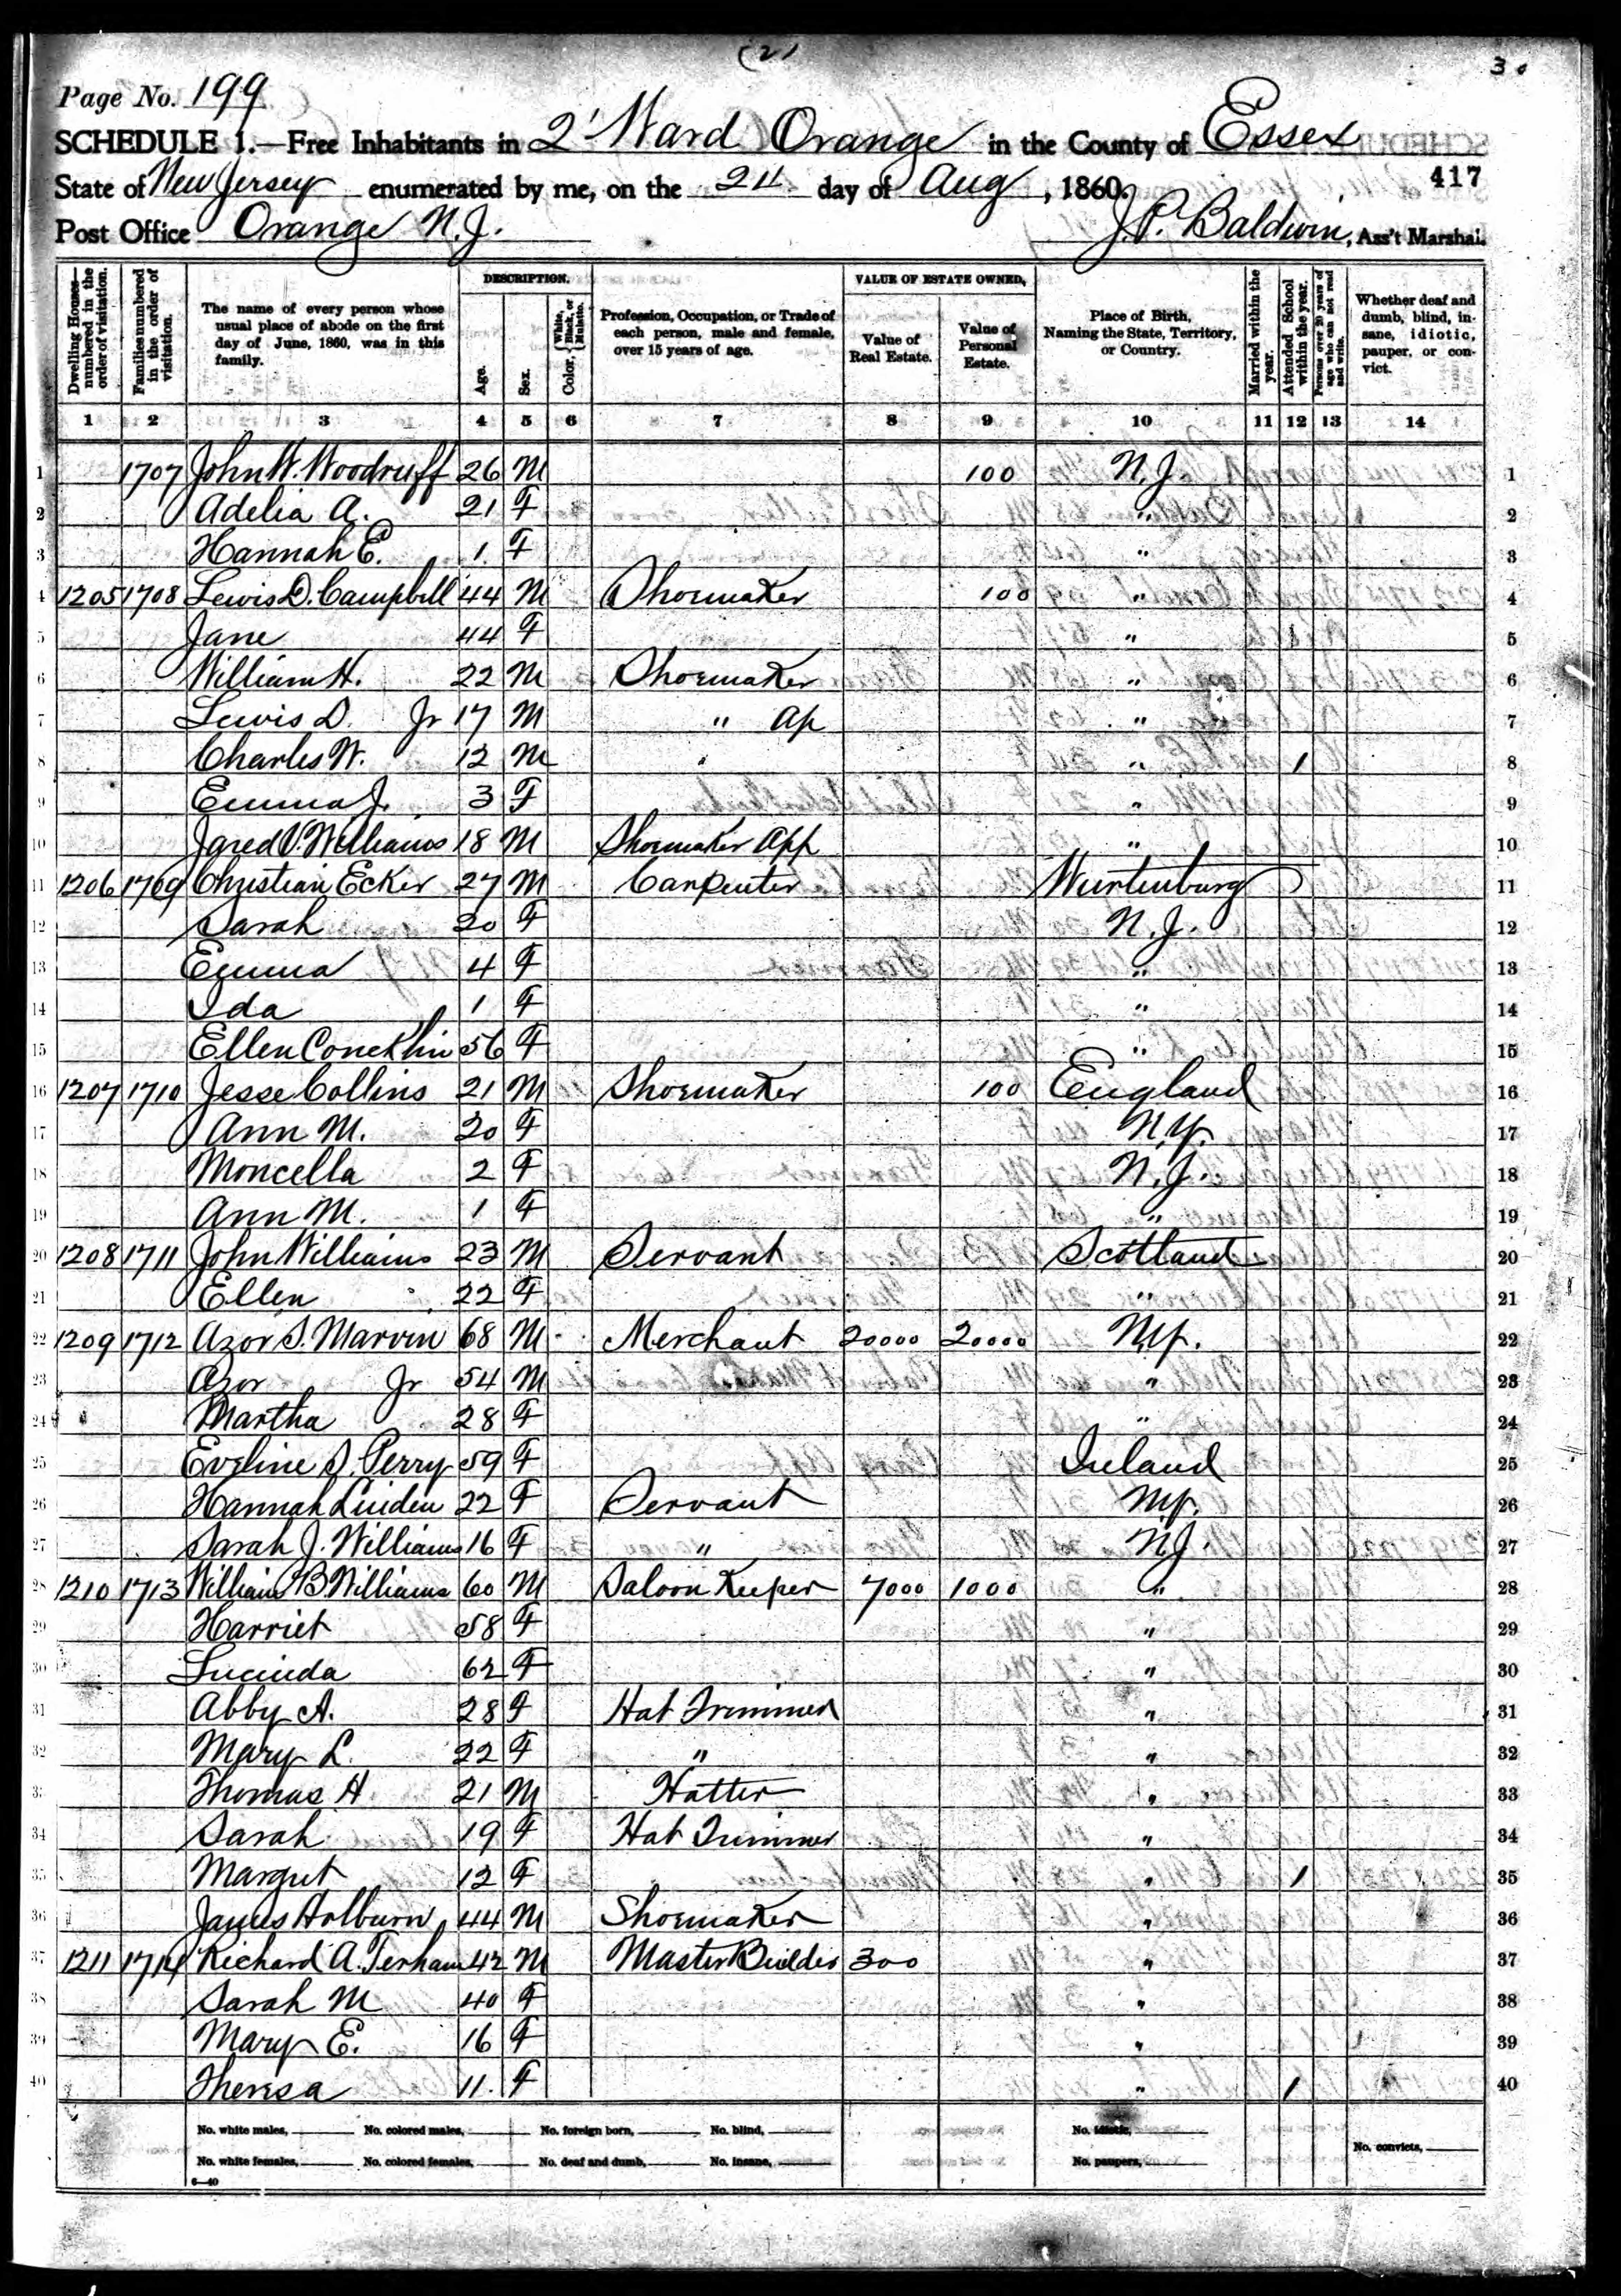 (21
30
Page No. 199
SCHEDULE 1.—Free Inhabitants in 2' Ward Orange in the County of Essex
State of New Jersey enumerated by me, on the day of Aug, 1860. 417
Post Office Orange N.J. J.P. Baldwin, Ass't Marshal.
Dwelling Houses—numbered in the order of visitation. Families numbered in the order of visitation. The name of every person whose usual place of abode on the first day of June, 1860, was in this family. DESCRIPTION. Age. Sex. Color, {White, Black, or Mulatto. Profession, Occupation, or Trade of each person, male and female, over 15 years of age. VALUE OF ESTATE OWNED, Value of Real Estate. Value of Personal Estate. Place of Birth, Naming the State, Territory, or Country. Married within the year. Attended School within the year. Persons over 20 years of age who can not read and write. Whether deaf and dumb, blind, insane, idiotic, pauper, or convict.
1 2 3 4 5 6 7 8 9 10 11 12 13 14
1 1707 John W. Woodruff 26 M 100 N.J. 1
2 Adelia A. 21 F " 2
3 Hannah E. 1 F " 3
4 1205 1708 Lewis D. Campbell 44 M Shoemaker 100 " 4
5 Jane 44 F " 5
6 William H. 22 M Shoemaker " 6
7 Lewis D. Jr 17 M " Ap " 7
8 Charles W. 12 M " 1 8
9 Emma J. 3 F " 9
10 Jared Williams 18 M Shoemaker App " 10
11 1206 1709 Christian Ecker 27 M Carpenter Wurtenburg 11
12 Sarah 20 F N.J. 12
13 Emma 4 F " 13
14 Ida 1 F " 14
15 Ellen Koncklin 56 F " 15
16 1207 1710 Jesse Collins 21 M Shoemaker 100 England 16
17 Ann M. 20 F N.Y. 17
18 Moncella 2 F N.J. 18
19 Ann M. 1 F " 19
20 1208 1711 John Williams 23 M Servant Scotland 20
21 Ellen 22 F " 21
22 1209 1712 Azor S. Marvin 68 M Merchant 20000 20000 N.Y. 22
23 Azor Jr 54 M " 23
24 Martha 28 F " 24
25 Eveline S. Perry 59 F Ireland 25
26 Hannah Linden 22 F Servant N.Y. 26
27 Sarah J. Williams 16 F " N.J. 27
28 1210 1713 William B. Williams 60 M Saloon Keeper 7000 1000 " 28
29 Harriet 58 F " 29
30 Lucinda 62 F " 30
31 Abby A. 28 F Hat Trimmer " 31
32 Mary L. 22 F " " 32
33 Thomas H 21 M Hatter " 33
34 Sarah 19 F Hat Trimmer " 34
35 Margret 12 F " 1 35
36 James 44 M Shoemaker " 36
37 1211 1714 Richard A. Terhune 42 M Master Builder 300 " 37
38 Sarah M 40 F " 38
39 Mary E. 16 F " 39
40 Theresa 11 F " 1 40
No. white males, No. colored males, No. foreign born, No. blind, No. idiotic,
No. white females, No. colored females, No. deaf and dumb, No. insane, No. paupers, No. convicts,
6—40